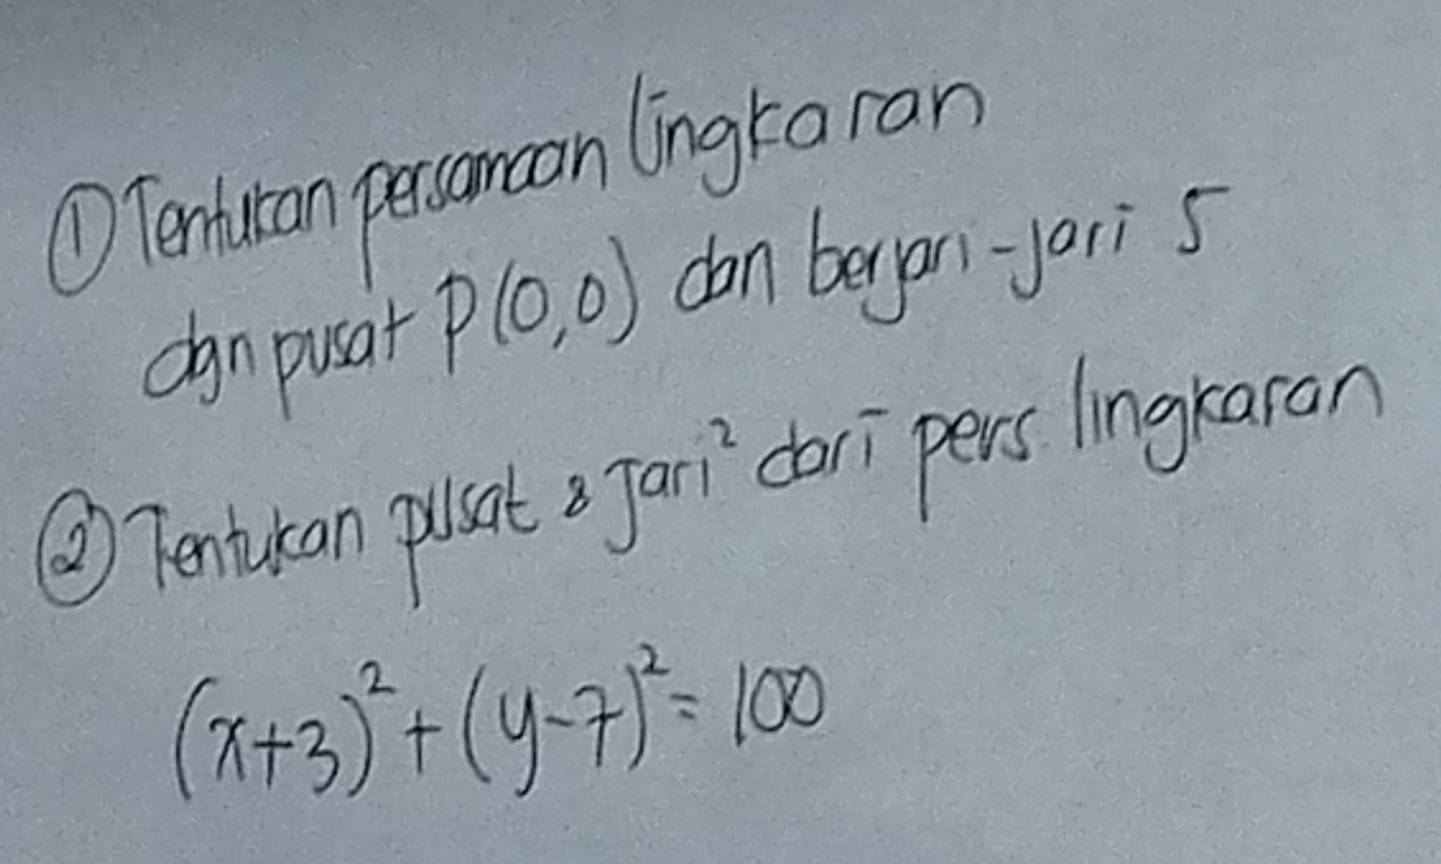 ① Tentukan persamaan lingkaran
dgn pusat P(0,0) dan berjari-jari 5
② Tentukan pusat & jari² dari pers. lingkaran
(x+3)² + (y-7)² = 100